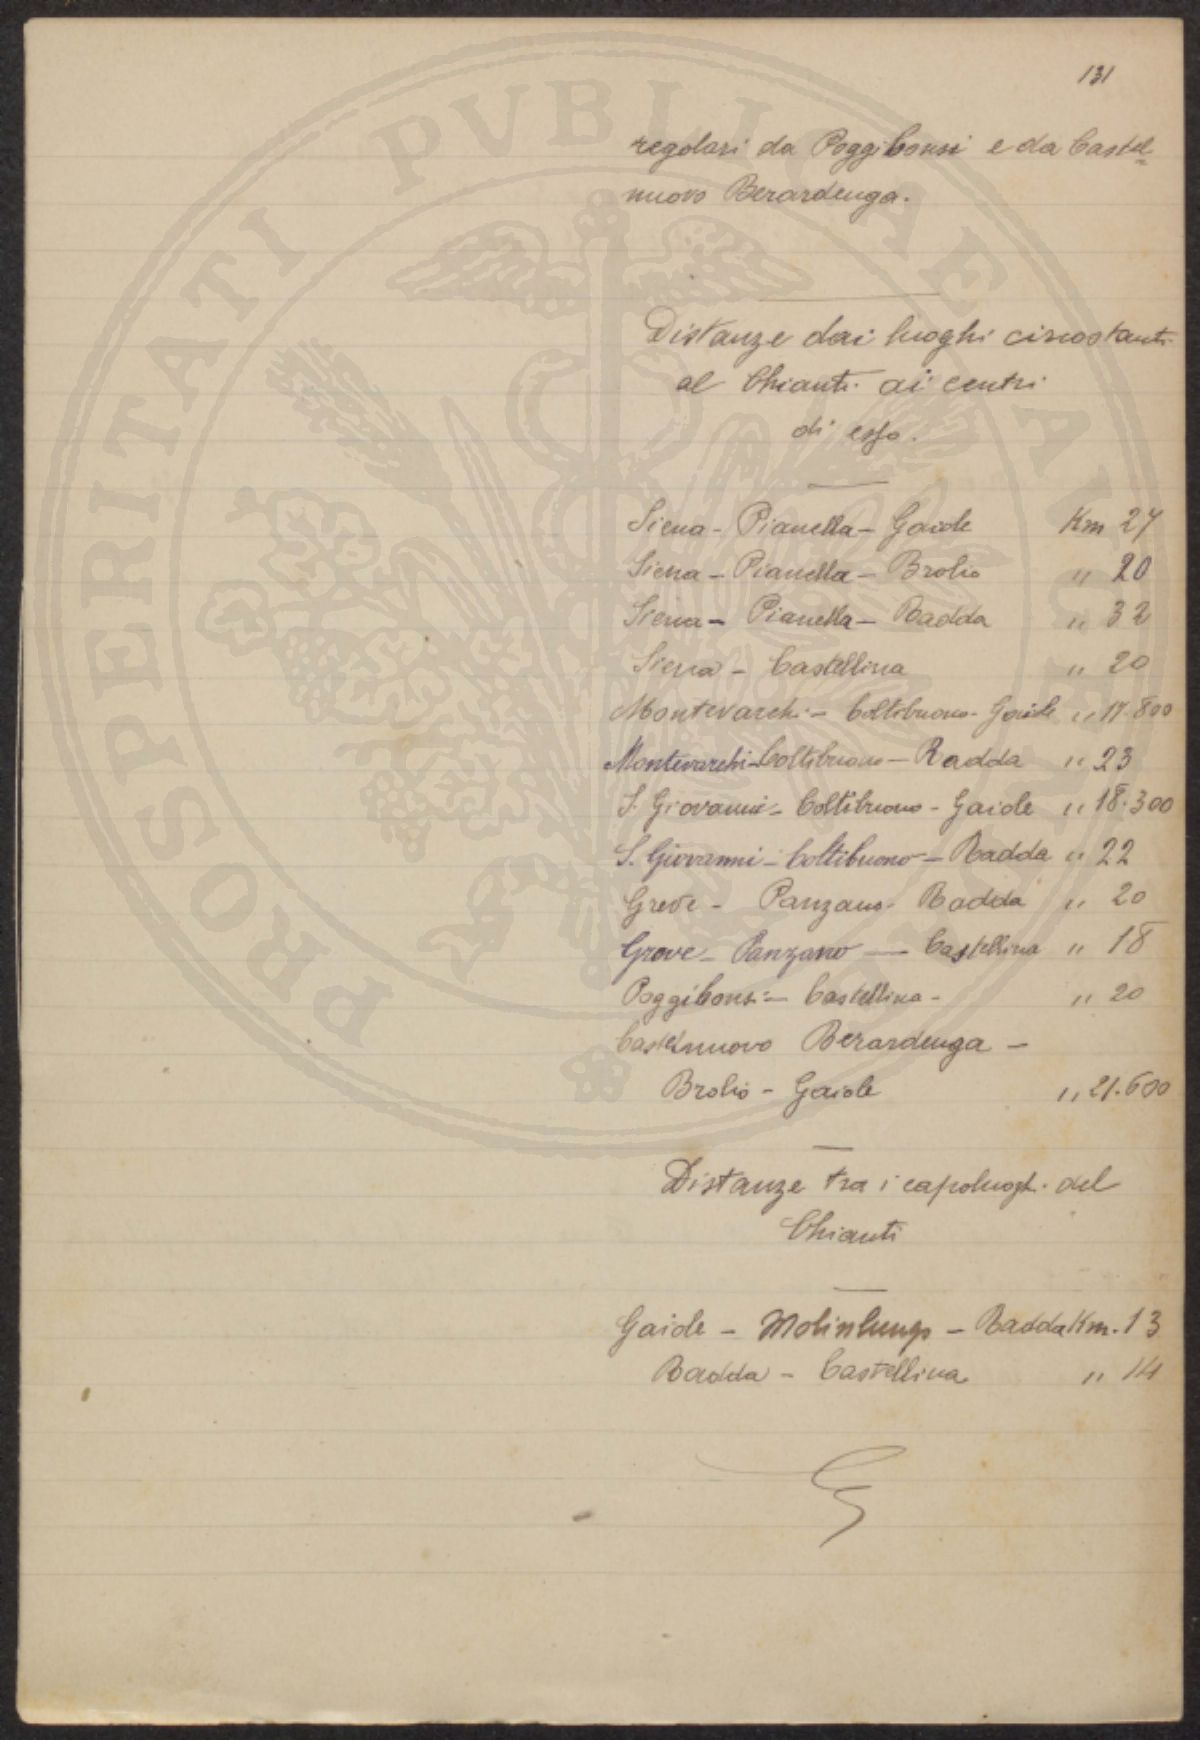 131
regolari da Poggibonsi e da Castel=
nuovo Berardenga.
Distanze dai luoghi circostanti
al Chianti ai centri
di esso.
Siena - Pianella - Gaiole Km 27
Siena - Pianella - Brolio " 20
Siena - Pianella - Radda " 32
Siena - Castellina " 20
Montevarchi - Coltibuono - Gaiole " 17.800
Montevarchi - Coltibuono - Radda " 23
S. Giovanni - Coltibuono - Gaiole " 18.300
S. Giovanni - Coltibuono - Radda " 22
Greve - Panzano - Radda " 20
Greve - Panzano - Castellina " 18
Poggibonsi - Castellina - " 20
Castelnuovo Berardenga -
Brolio - Gaiole " 21.600
Distanze tra i capoluoghi del
Chianti
Gaiole - Molinlungo - Radda Km. 13
Radda - Castellina " 14
PROSPERITATI PVBLICAE AVGENDAE